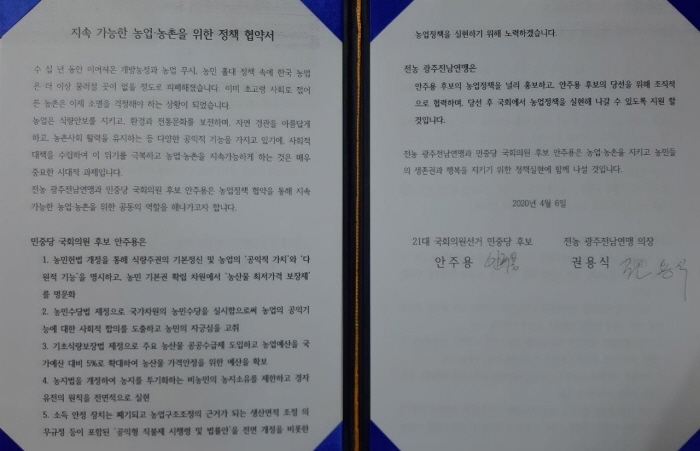 지속 가능한 농업·농촌을 위한 정책 협약서
수 십 년 동안 이어져온 개방농정과 농업 무시, 농민 홀대 정책 속에 한국 농업
은 더 이상 물러설 곳이 없을 정도로 피폐해졌습니다. 이미 초고령 사회로 접어
든 농촌은 이제 소멸을 걱정해야 하는 상황이 되었습니다.
농업은 식량안보를 지키고, 환경과 전통문화를 보전하며, 자연 경관을 아름답게
하고, 농촌사회 활력을 유지하는 등 다양한 공익적 기능을 가지고 있기에, 사회적
대책을 수립하여 이 위기를 극복하고 농업·농촌을 지속가능하게 하는 것은 매우
중요한 시대적 과제입니다.
전농 광주전남연맹과 민중당 국회의원 후보 안주용은 농업정책 협약을 통해 지속
가능한 농업·농촌을 위한 공동의 역할을 해나가고자 합니다.
민중당 국회의원 후보 안주용은
1. 농민헌법 개정을 통해 식량주권의 기본정신 및 농업의 '공익적 가치'와 '다
원적 기능'을 명시하고, 농민 기본권 확립 차원에서 '농산물 최저가격 보장제'
를 명문화
2. 농민수당법 제정으로 국가차원의 농민수당을 실시함으로써 농업의 공익기
능에 대한 사회적 합의를 도출하고 농민의 자긍심을 고취
3. 기초식량보장법 제정으로 주요 농산물 공공수급제 도입하고 농업예산을 국
가예산 대비 5%로 확대하여 농산물 가격안정을 위한 예산을 확보
4. 농지법을 개정하여 농지를 투기화하는 비농민의 농지소유를 제한하고 경자
유전의 원칙을 전면적으로 실현
5. 소득 안정 장치는 폐기되고 농업구조조정의 근거가 되는 생산면적 조정 의
무규정 등이 포함된 '공익형 직불제 시행령 및 법률안'을 전면 개정을 비롯한
농업정책을 실현하기 위해 노력하겠습니다.
전농 광주전남연맹은
안주용 후보의 농업정책을 널리 홍보하고, 안주용 후보의 당선을 위해 조직적
으로 협력하며, 당선 후 국회에서 농업정책을 실현해 나갈 수 있도록 지원 할
것입니다.
전농 광주전남연맹과 민중당 국회의원 후보 안주용은 농업·농촌을 지키고 농민들
의 생존권과 행복을 지키기 위한 정책실현에 함께 나설 것입니다.
2020년 4월 6일
21대 국회의원선거 민중당 후보 전농 광주전남연맹 의장
안주용 안주용 권용식 권용식